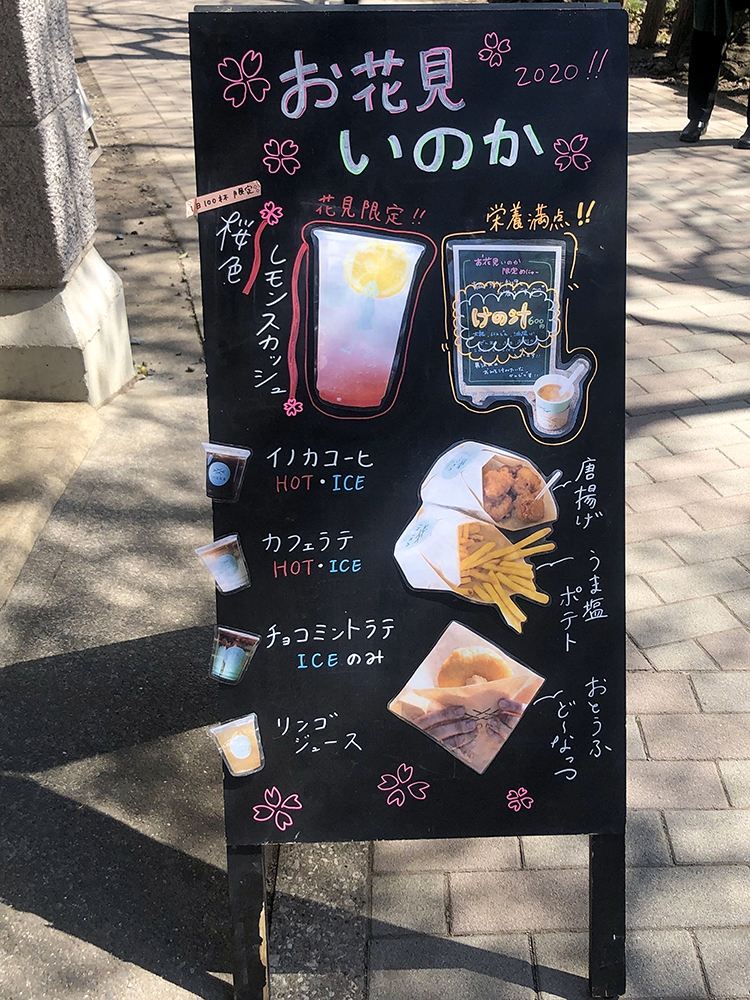 お花見
2020!!
いのか
1日100杯限定
桜色
レモンスカッシュ
花見限定!!
栄養満点!!
お花見いのか
限定めにゅー
けの汁
600円
イノカコーヒ
HOT・ICE
カフェラテ
HOT・ICE
チョコミントラテ
ICEのみ
リンゴ
ジュース
唐揚げ
うま塩
ポテト
おとうふ
ど〜なっつ